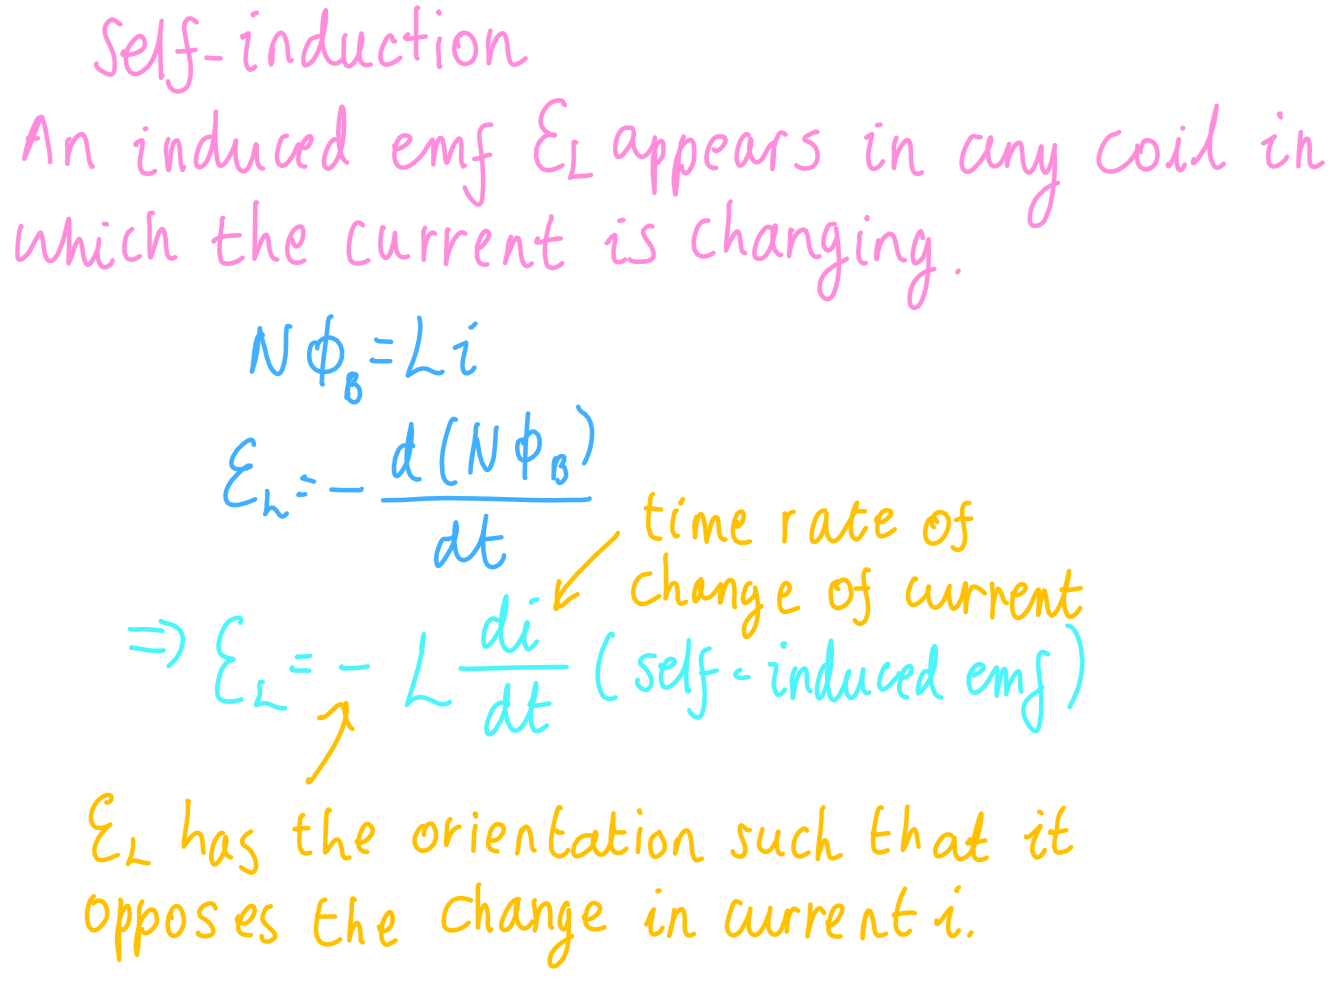 Self-induction
An induced emf ℰL appears in any coil in
which the current is changing.
NϕB=Li
ℰL=-d(NϕB)/dt
time rate of
change of current
⇒ ℰL=-L di/dt (self-induced emf)
ℰL has the orientation such that it
opposes the change in current i.